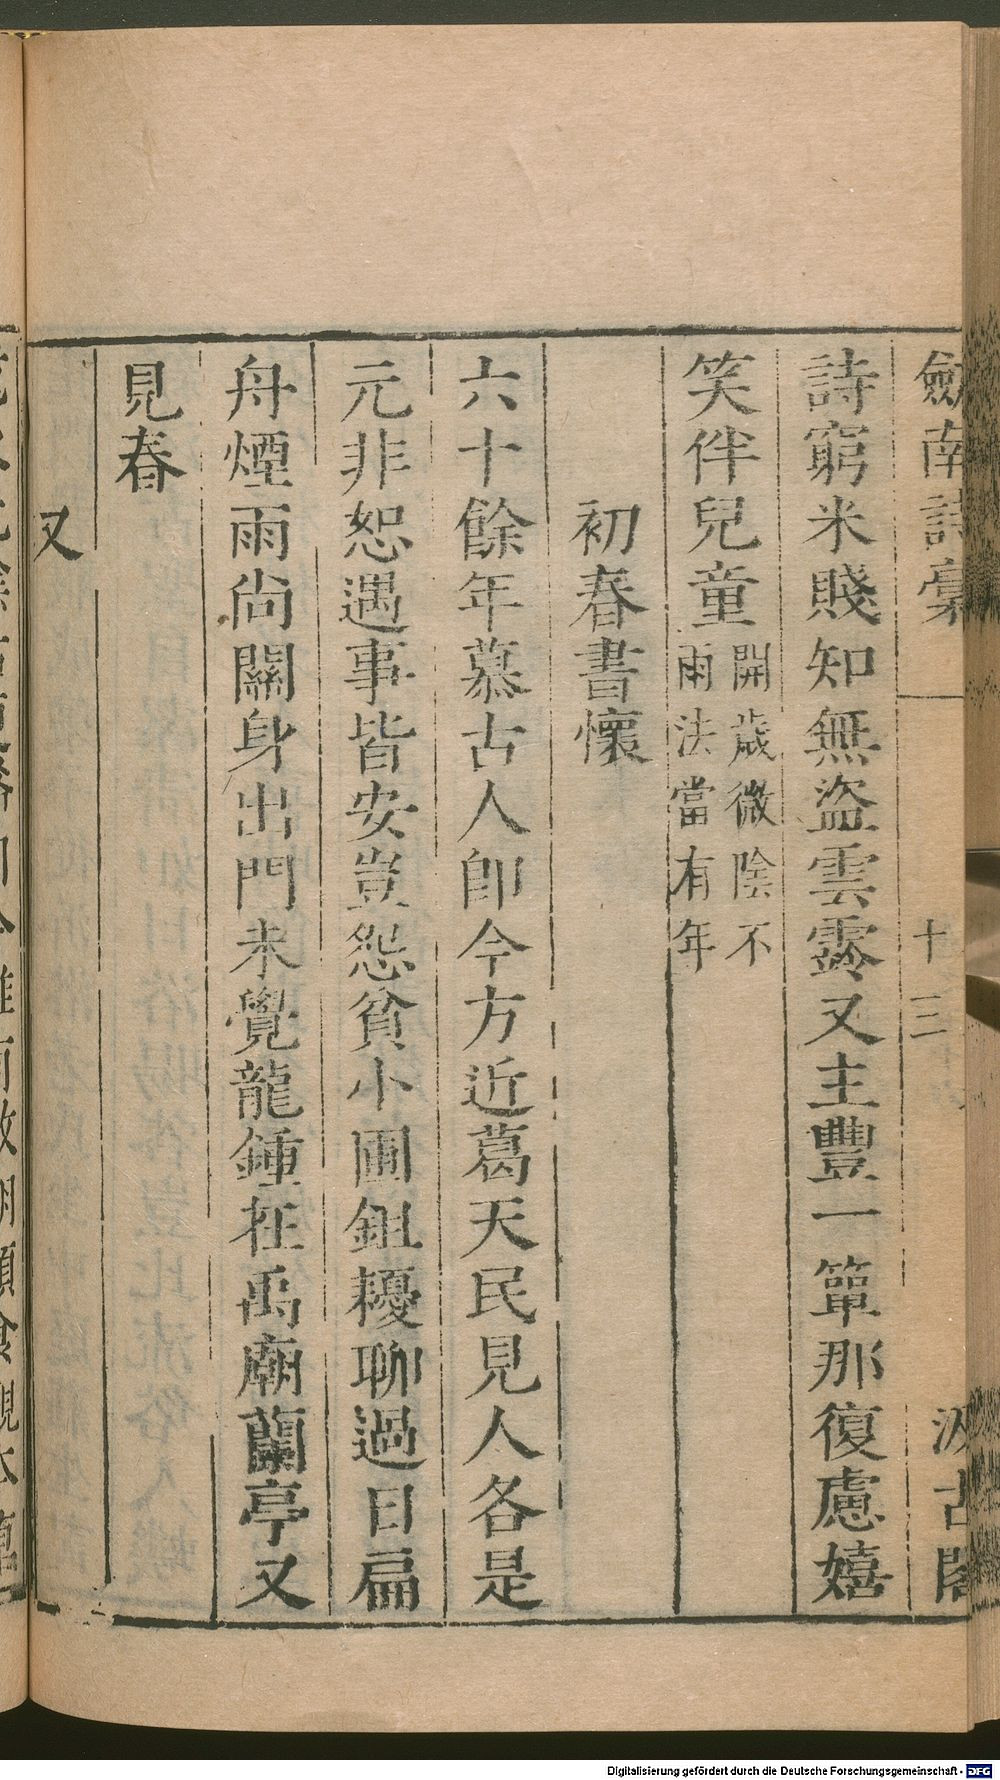 劔南詩稾 十三 汲古閣
詩窮米賤知無盜雲露又主豐一簞那復慮嬉
笑伴兒童開歲微陰不雨法當有年
初春書懷
六十餘年慕古人卽今方近葛天民見人各是
元非恕遇事皆安豈怨貧小圃鉏耰聊過日扁
舟煙雨尚關身出門未覺龍鍾在禹廟蘭亭又
見春
又
Digitalisierung gefördert durch die Deutsche Forschungsgemeinschaft - DFG